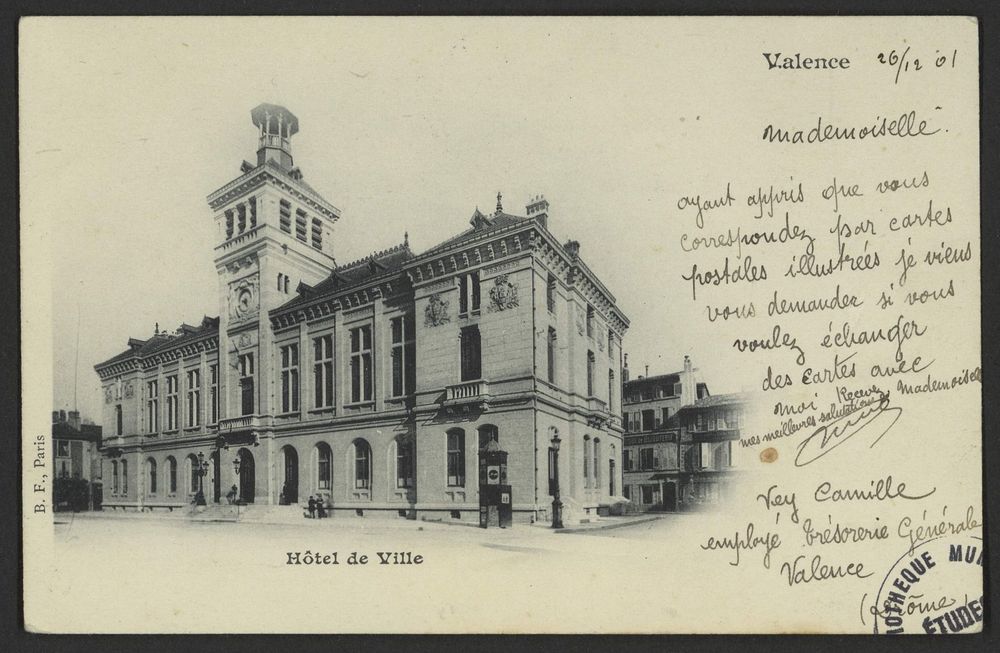 Valence 26/12 01
Mademoiselle.
ayant appris que vous
correspondez par cartes
postales illustrées je viens
vous demander si vous
voulez échanger
des cartes avec
moi Recevez Mademoiselle
mes meilleures salutations
Vey Camille
employé Trésorerie Générale
Valence
(Drôme)
B. F., Paris
Hôtel de Ville
IOTHEQUE MU
ÉTUDES